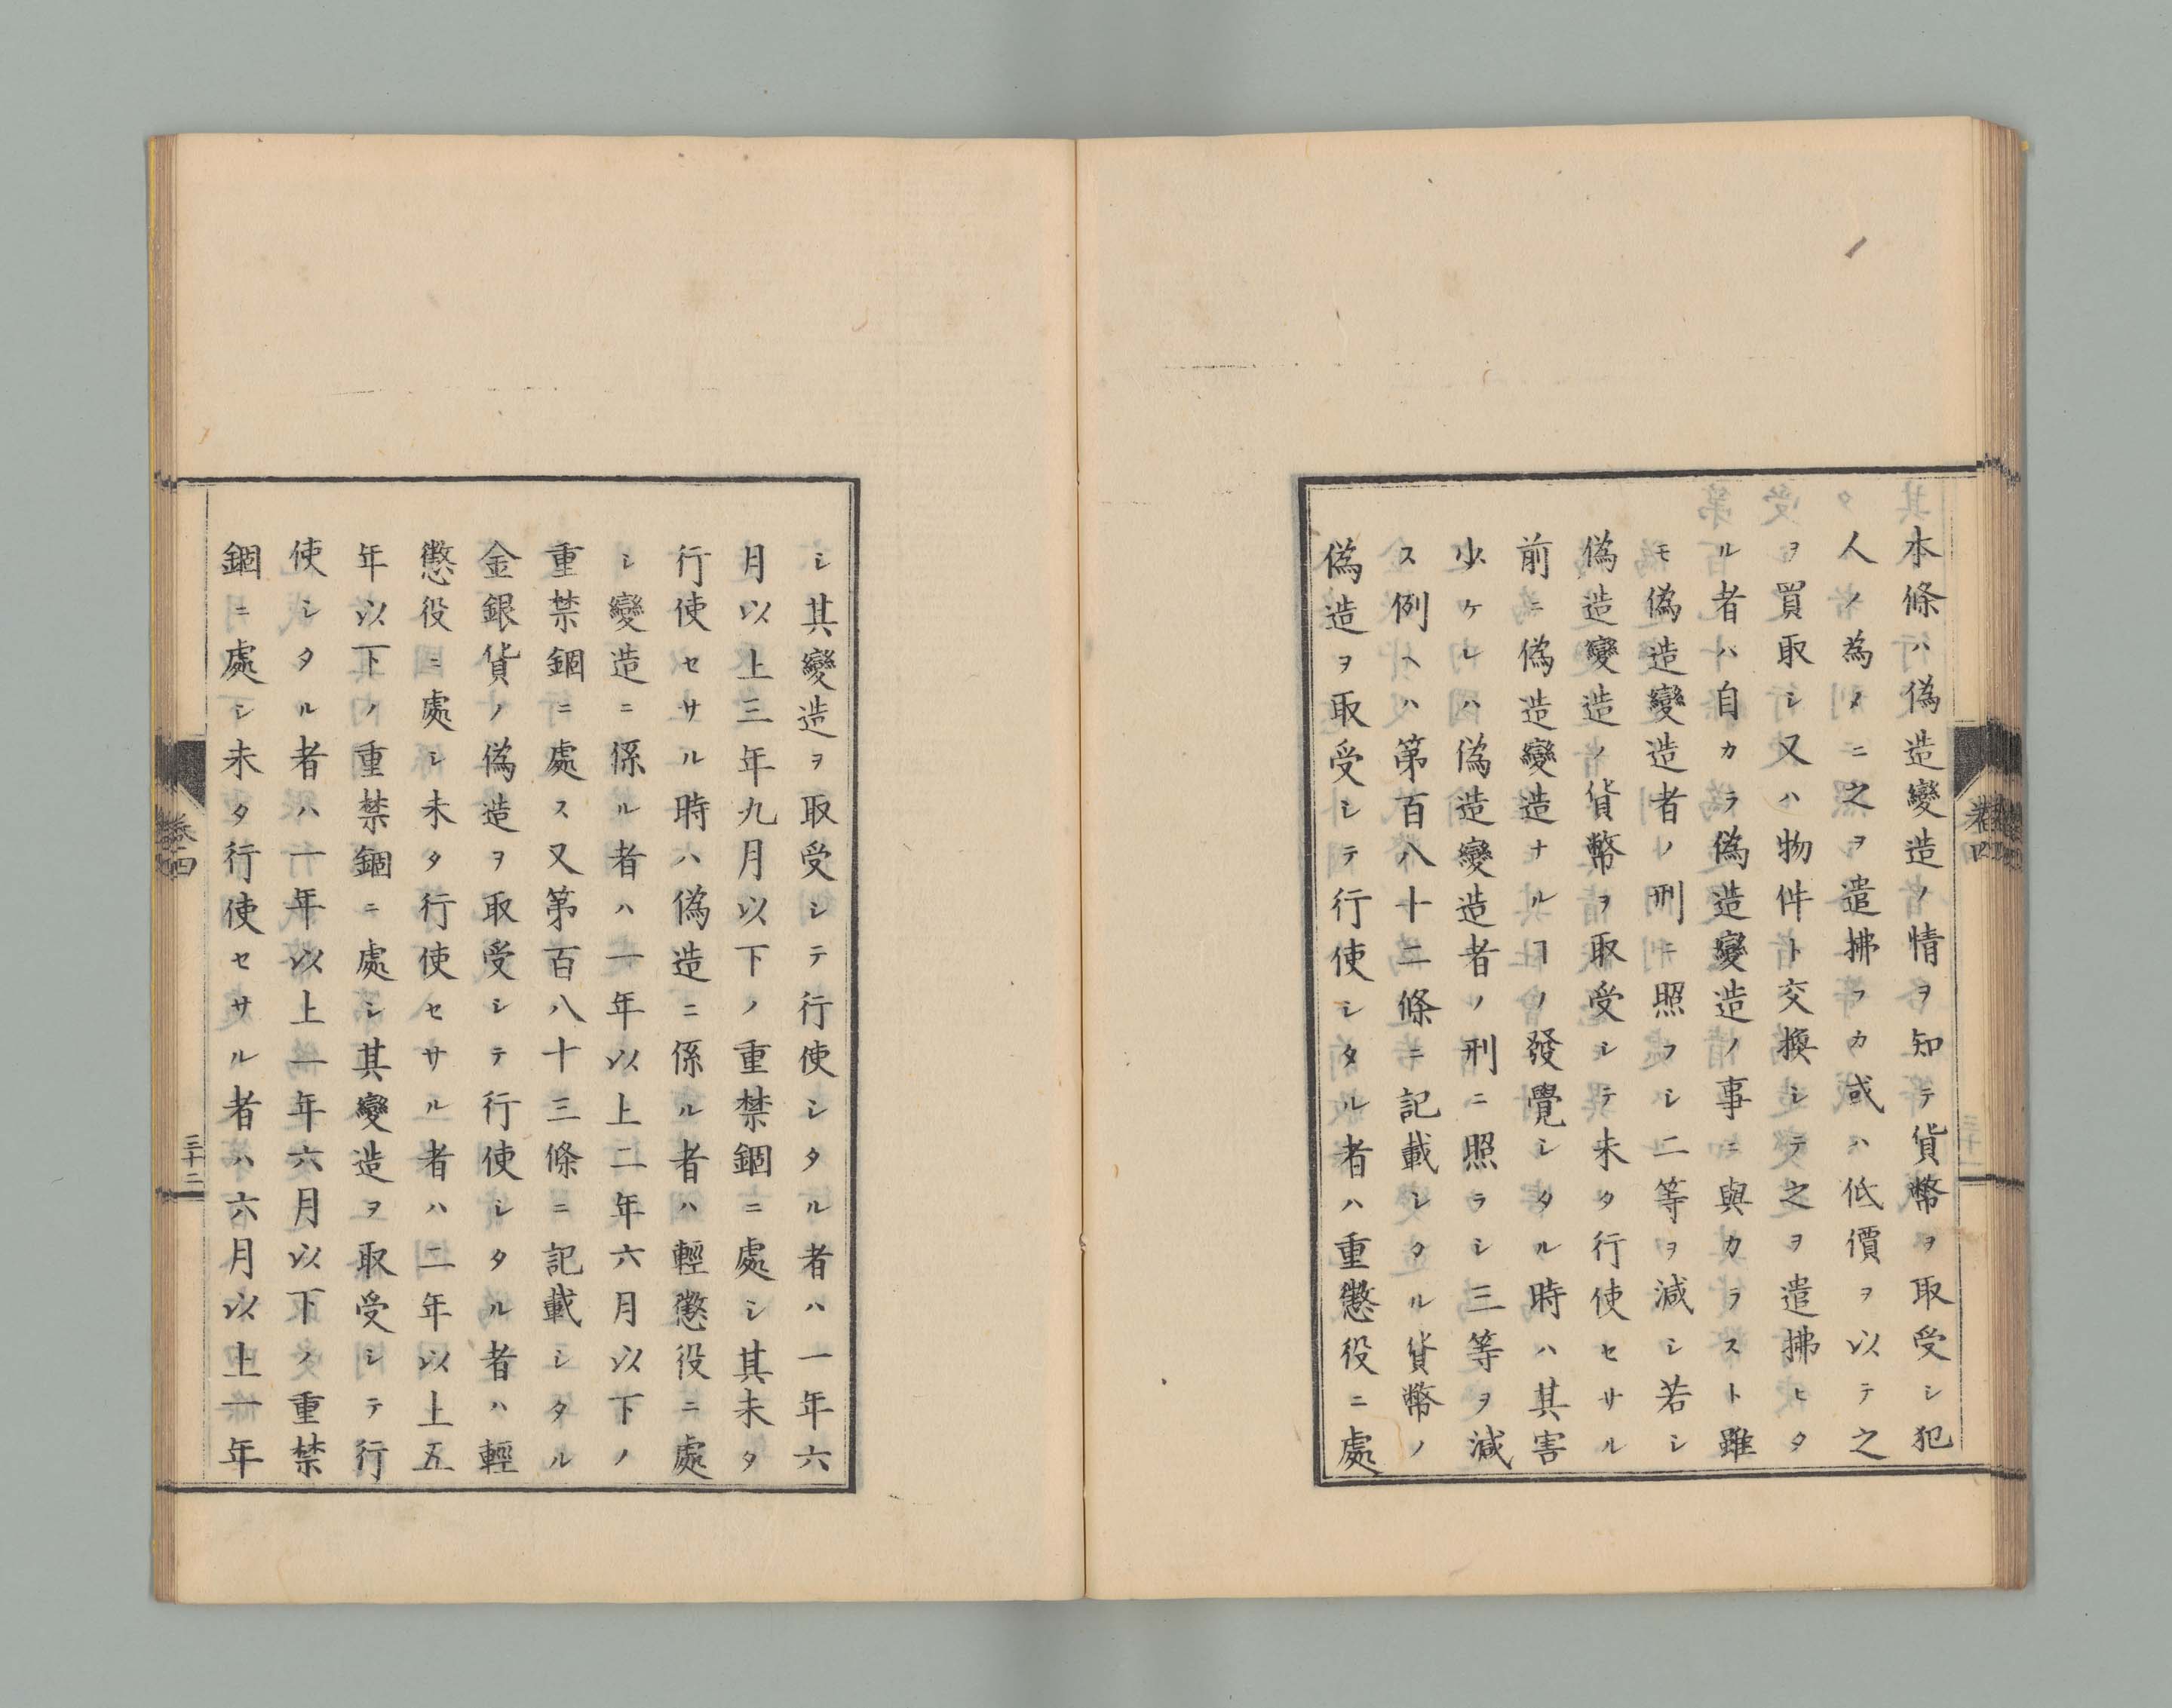 本條ハ偽造變造ノ情ヲ知テ貨幣ヲ取受シ犯
人ノ為メニ之ヲ遣拂フカ或ハ低價ヲ以テ之
ヲ買取シ又ハ物件ト交換シテ之ヲ遣拂ヒタ
ル者ハ自カラ偽造變造ノ事ニ與カラスト雖
モ偽造變造者ノ刑ニ照フシ二等ヲ減シ若シ
偽造變造ノ貨幣ヲ取受シテ未タ行使セサル
前ニ偽造變造ナルヿノ發覺シタル時ハ其害
少ケレハ偽造變造者ノ刑ニ照ラシ三等ヲ減
ス例ヘハ第百八十二條ニ記載シタル貨幣ノ
偽造ヲ取受シテ行使シタル者ハ重懲役ニ處
卷四
シ其變造ヲ取受シテ行使シタル者ハ一年六
月以上三年九月以下ノ重禁錮ニ處シ其未タ
行使セサル時ハ偽造ニ係ル者ハ輕懲役ニ處
シ變造ニ係ル者ハ一年以上二年六月以下ノ
重禁錮ニ處ス又第百八十三條ニ記載シタル
金銀貨ノ偽造ヲ取受シテ行使シタル者ハ輕
懲役ニ處シ未タ行使セサル者ハ二年以上五
年以下ノ重禁錮ニ處シ其變造ヲ取受シテ行
使シタル者ハ一年以上二年六月以下ノ重禁
錮ニ處シ未タ行使セサル者ハ六月以上一年
卷四
三十二